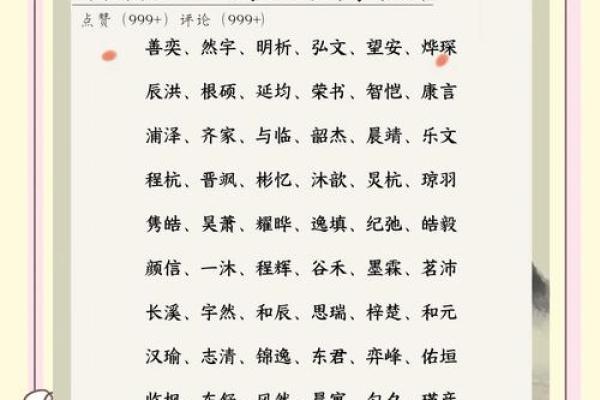 点赞（999+）评论（999+）
善奕、然宇、明析、弘文、望安、烨琛
辰洪、根硕、延均、荣书、智恺、康言
浦泽、齐家、与临、韶杰、晨靖、乐文
程杭、晋飒、彬忆、沐歆、炅杭、琼羽
隽皓、昊萧、耀晔、逸填、纪弛、皓毅
颜信、一沐、程辉、谷禾、墨霖、茗沛
长溪、宇然、和辰、思瑞、梓楚、和元
汉瑜、志清、锦逸、东君、弈峰、佑垣